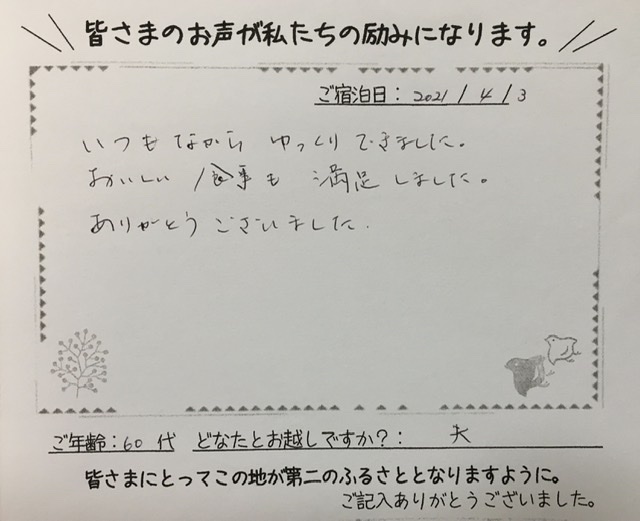 皆さまのお声が私たちの励みになります。
ご宿泊日：2021/4/3
いつもながら ゆっくりできました。
おいしい 食事も 満足しました。
ありがとうございました.
ご年齢：60代 どなたとお越しですか？： 夫
皆さまにとってこの地が第二のふるさととなりますように。
ご記入ありがとうございました。